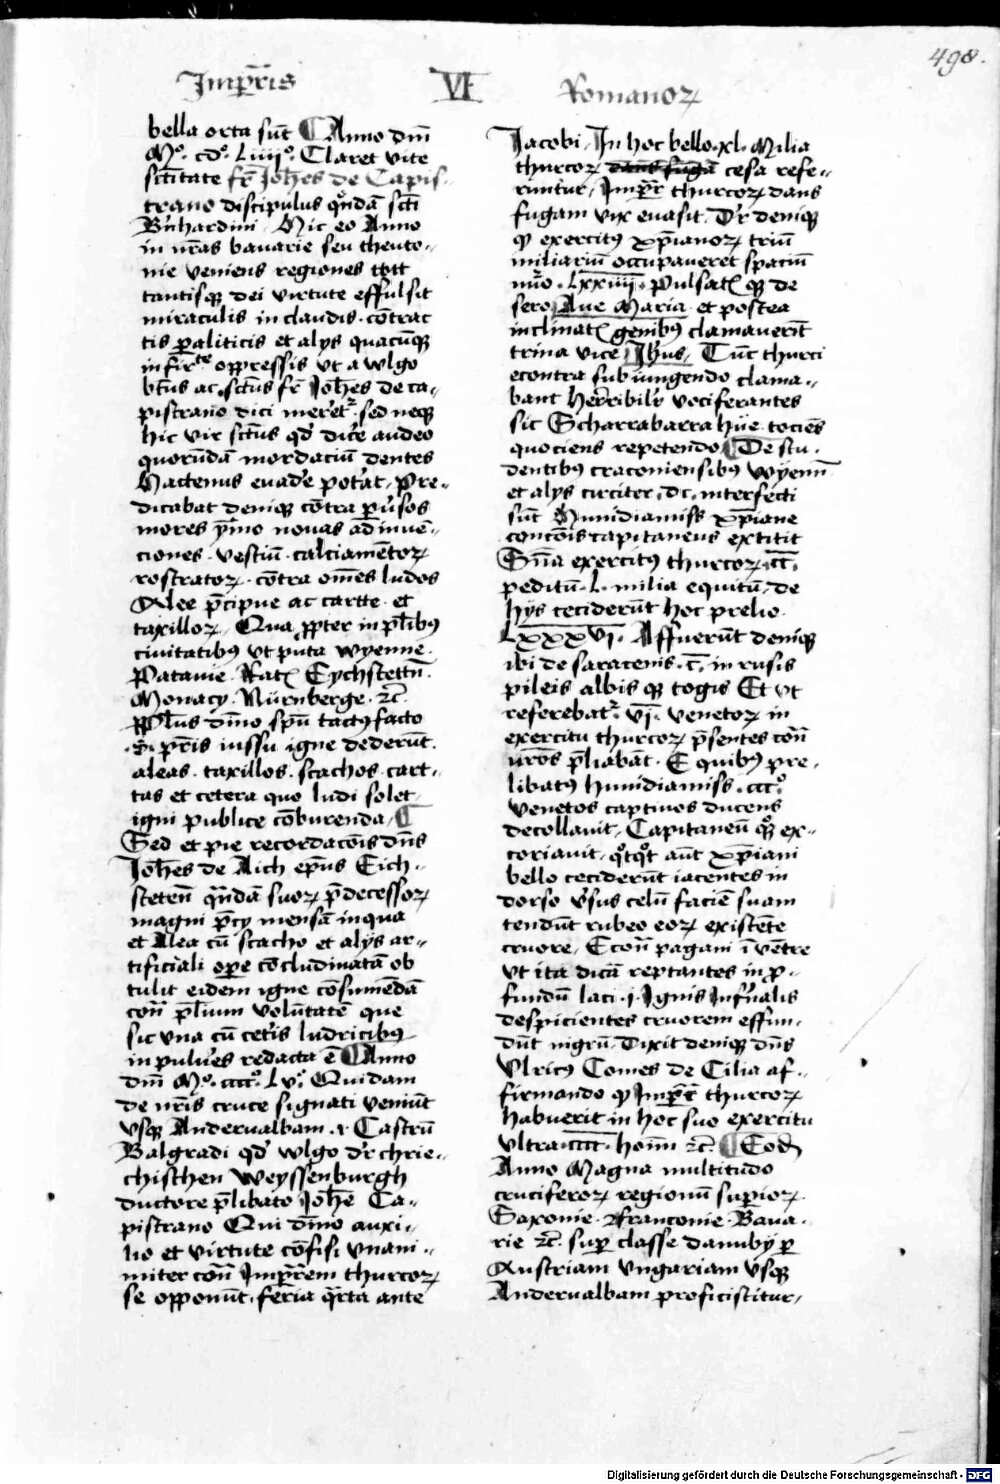 498.
Imꝑr̄is VI Romanoꝝ
bella orta sūt ¶ Anno dn̄i
Mº. cdº. Liiiiº. Claret vite
sctītate fr̄ Joh̄es de Capis-
trano discipulus qͦndā scti
Bn̄hardini / Hic eo Anno
in nr̄as bavarie seu theuto-
nie veniens regiones tōtt
tantisqꝫ dei virtute effulsit
miraculis in claudis cōtrac
tis ꝑaliticis et alijs quacūqꝫ
infirte oppressis vt a wlgo
btūs ac sctūs fr̄ Joh̄es de ca-
pistrano dici meret᷑ sed neqꝫ
hic vir sctūs qd̕ dic̕e audeo
quorūdā mordaciū dentes
Hactenus evad̕e pot̕at / Pre-
dicabat deniqꝫ cōtra ꝑv̕sos
mores ymo novas adinvē-
ciones vestiū calciamētoꝝ
rostratoꝝ cōtra om̄es ludos
Alee p̄cipue ac cartte et
taxilloꝝ / Qua ꝓpter in pl̕ibꝰ
civitatibꝰ vt puta wyenne
Patavie Ratꝭ Eychstettn̄
Monacy Nürnberge ⁊c̄
ppl̄us dīno spū tactꝰ facto
s. pr̄is iussu igne dederūt
aleas taxillos scachos cart-
tas et cetera quo ludi solet
igni publice cōburenda ¶
Sed et pie recordacōis dn̄s
Joh̄es de Aich ep̄us Eich-
stetēn qͣndā suoꝝ p̄decessoꝝ
magni p̄cij mensā in qua
et Alea cū scacho et alijs ar-
tificiali oꝑe cōcludinatā ob
tulit eidem igne cōsumēdā
con̄ pl̕ium volūtatē que
sic vna cū cet̕is ludricibꝰ
in pulv̕es redacta ē ¶ Anno
dn̄i Mº. ccccº. Lvº. Quidam
de nr̄is cruce signati veniūt
vsqꝫ Andervalbam ⁊ Castrū
Balgradi qd̕ wlgo dr̄ chrie-
chischen weyssenburgh
ductore p̄libato Joh̄e Ca-
pistrano Qui dīno auxi-
lio et virtute cōfisi vnani-
miter con̄ Imꝑr̄em thurcoꝝ
se opponūt feria qͣrta ante
Jacobi / In hoc bello xl. Milia
thurcoꝝ cesa refe-
runtur / Imꝑr̄ thurcoꝝ dans
fugam vix evasit / Dr̄ deniqꝫ
ꝙ exercitꝰ xp̄ianoꝝ triū
miliariū occupaveret spaciū
nͬo. Lxxiiij. Pulsatꝭ qꝫ de
sero Ave Maria et postea
inclinatꝭ genibꝰ clamaverūt
trina vice Jhūs / Tūc thurci
econtra subiungendo clama-
bant Herribilit̕ vociferantes
sic Scharrabarra hüe tociēs
quociens repetendo ¶ De stu-
dentibꝰ craconiensibꝰ wyenn̄
et alijs circiter dc. interfecti
sūt Hunidiamiss xp̄iane
concōis capitaneus extitit
Sūa exercitꝰ thurcoꝝ cc̄
peditū L. milia equitū / de
hijs ceciderūt hoc prelio
Lxxxvi. Affuerūt deniqꝫ
ibi de saracenis c̄ in rusis
pileis albis qꝫ togis Et vt
referebat᷑ vi. venetoꝝ in
exercitu thurcoꝝ p̄sentes con̄
nr̄os p̄liabāt E quibꝰ pre-
libatꝰ hunidiamiss cccº
venetos captivos ducens
decollavit / Capitaneū qͦꝫ ex-
coriavit / qͦtqͦt aūt xp̄iani
bello ceciderūt iacentes in
dorso v̕sus celū faciē suam
tendūt rubeo eoꝝ existēte
cruore / Econ̄ pagani ī vētre
vt ita dicā reptantes in ꝓ-
fundū laci .i. Ignis Infn̄alis
despicientes cruorem effun-
dūt nigrū / Dixit deniqꝫ dn̄s
Vlricꝰ Comes de Cilia af-
firmando ꝙ Imꝑr̄ thurcoꝝ
habuerit in hoc suo exercitu
vltra cccc. hom̄ ⁊c̄ ¶ Eod̄
Anno Magna multitudo
cruciferoꝝ regionū suꝑioꝝ
Saxonie franconie Bava-
rie ⁊c̄ suꝑ classe danubij ꝑ
Austriam Vngariam vsqꝫ
Andervalbam proficiscitur /
Digitalisierung gefördert durch die Deutsche Forschungsgemeinschaft - DFG